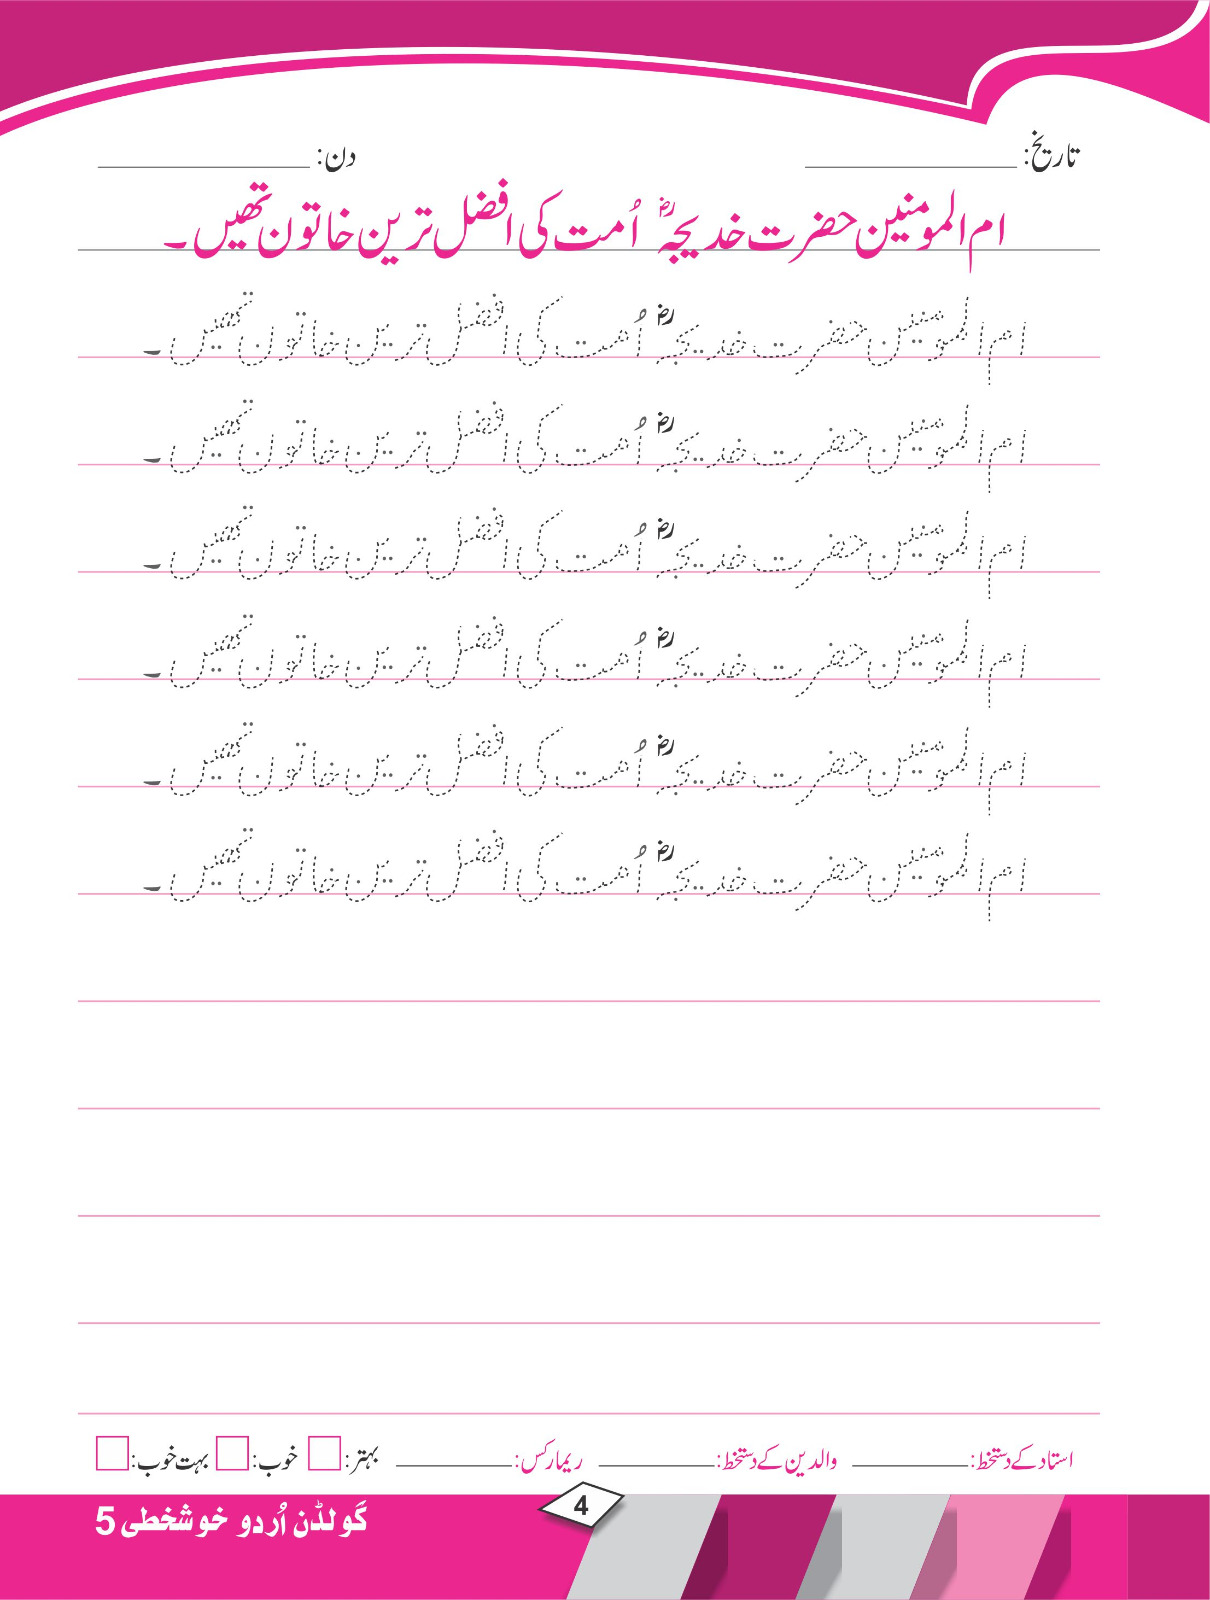 تاریخ: ____________ دن: ____________
ام المومنین حضرت خدیجہؓ اُمت کی افضل ترین خاتون تھیں۔
ام المومنین حضرت خدیجہؓ اُمت کی افضل ترین خاتون تھیں۔
ام المومنین حضرت خدیجہؓ اُمت کی افضل ترین خاتون تھیں۔
ام المومنین حضرت خدیجہؓ اُمت کی افضل ترین خاتون تھیں۔
ام المومنین حضرت خدیجہؓ اُمت کی افضل ترین خاتون تھیں۔
ام المومنین حضرت خدیجہؓ اُمت کی افضل ترین خاتون تھیں۔
ام المومنین حضرت خدیجہؓ اُمت کی افضل ترین خاتون تھیں۔
استاد کے دستخط: ________ والدین کے دستخط: ________ ریمارکس: ________ بہتر: خوب: بہت خوب:
4
گولڈن اُردو خوشخطی 5